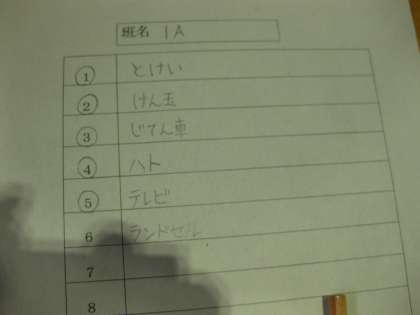 班名 1A
① とけい
② けん玉
③ じてん車
④ ハト
⑤ テレビ
6 ランドセル
7
8